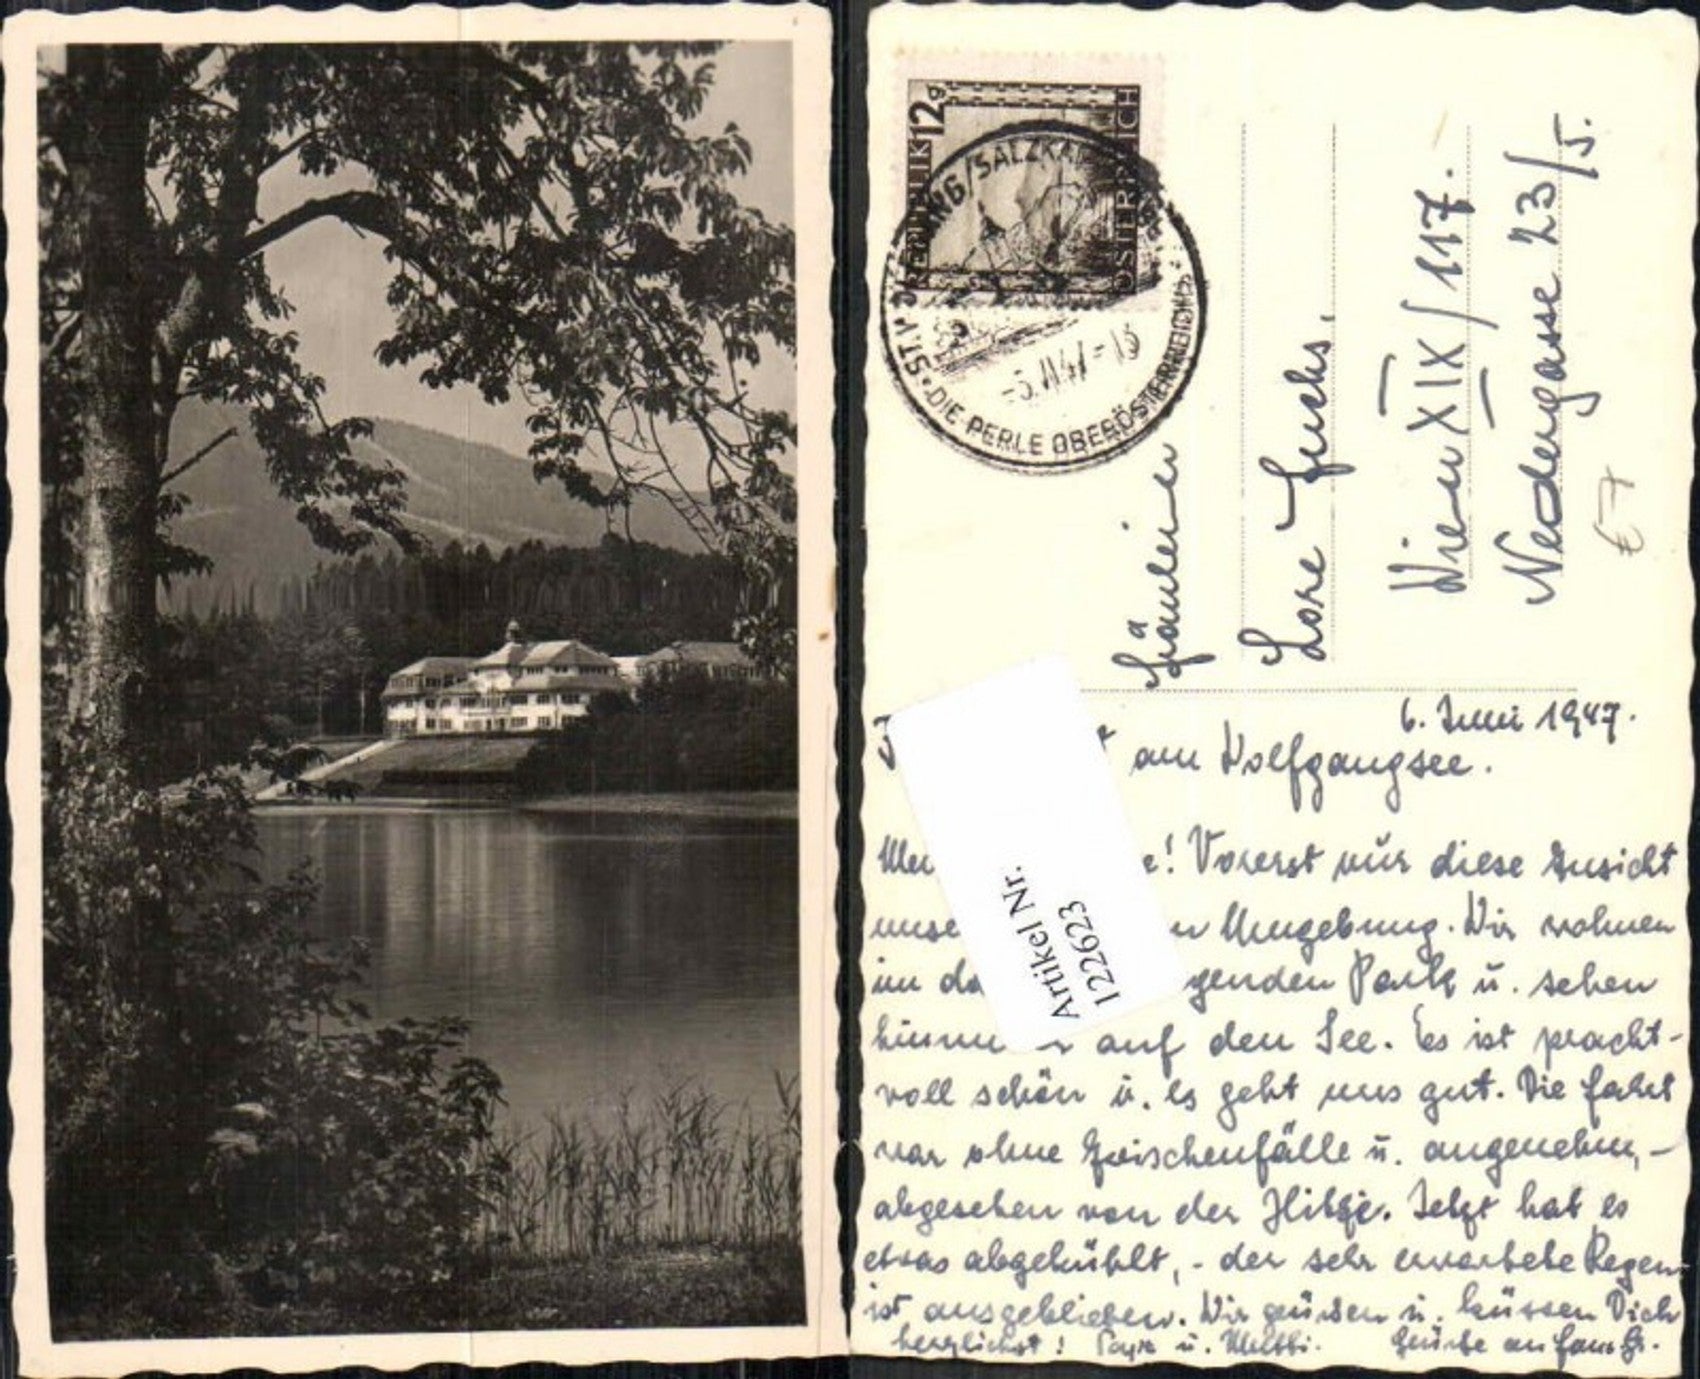 REPUBLIK 12g ÖSTERREICH
ST. WOLFGANG/SALZKA
DIE PERLE OBERÖSTERREICHS
Fräulein
Lore Fuchs.
Wien XIX/117.
Nedergasse 23/5.
€ 7
6. Juni 1947.
am Wolfgangsee.
Artikel Nr.
122623
e! Vorerst nur diese Ansicht
Umgebung. Wir wohnen
im genden Park u. sehen
auf den See. Es ist pracht-
voll schön u. es geht uns gut. Die Fahrt
war ohne Zwischenfälle u. angenehm, -
abgesehen von der Hitze. Jetzt hat es
etwas abgekühlt, - der sehr erwartete Regen
ist ausgeblieben. Wir grüßen u. küssen Dich
herzlichst! u. Mutti. Grüße an